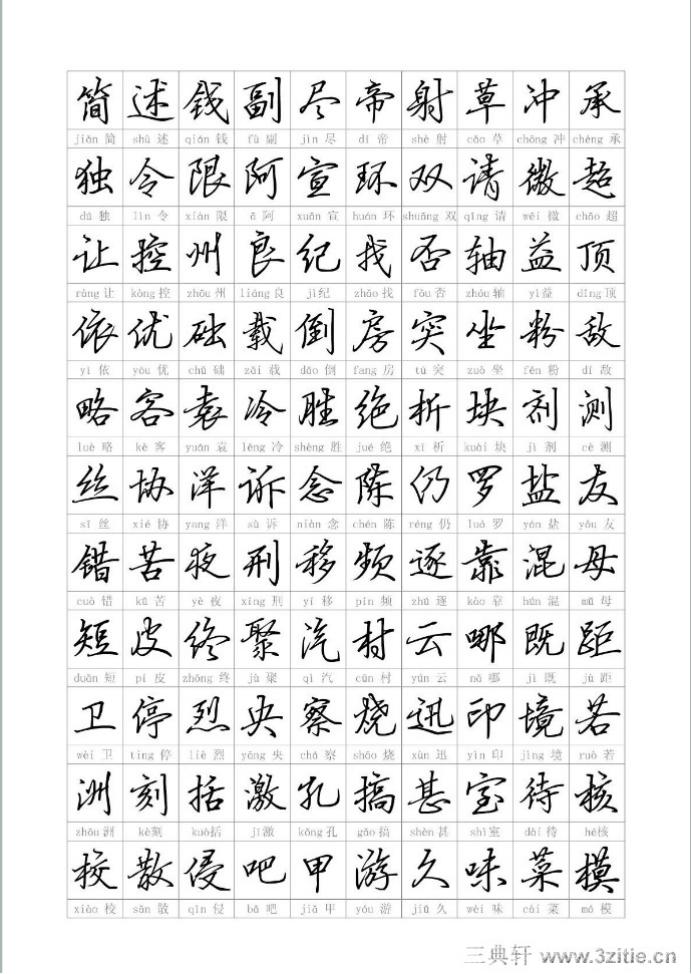 简述钱副尽帝射草冲承
jiǎn 简 shù 述 qián 钱 fù 副 jìn 尽 dì 帝 shè 射 cǎo 草 chōng 冲 chéng 承
独令限阿宣环双请微超
dú 独 lìn 令 xiàn 限 ā 阿 xuān 宣 huán 环 shuāng 双 qǐng 请 wēi 微 chāo 超
让控州良纪找否轴益顶
ràng 让 kòng 控 zhōu 州 liáng 良 jì 纪 zhǎo 找 fǒu 否 zhóu 轴 yì 益 dǐng 顶
依优础载倒房突坐粉敌
yī 依 yōu 优 chǔ 础 zǎi 载 dǎo 倒 fang 房 tū 突 zuò 坐 fěn 粉 dí 敌
略客袁冷胜绝析块剂测
luè 略 kè 客 yuán 袁 lěng 冷 shèng 胜 jué 绝 xī 析 kuài 块 jì 剂 cè 测
丝协洋诉念陈仍罗盐友
sī 丝 xié 协 yang 洋 sù 诉 niàn 念 chén 陈 réng 仍 luó 罗 yán 盐 yǒu 友
错苦夜刑移频逐靠混母
cuò 错 kǔ 苦 yè 夜 xíng 刑 yí 移 pín 频 zhú 逐 kào 靠 hùn 混 mǔ 母
短皮终聚汽村云哪既距
duǎn 短 pí 皮 zhōng 终 jù 聚 qì 汽 cūn 村 yún 云 nǎ 哪 jì 既 jù 距
卫停烈央察烧迅印境若
wèi 卫 tíng 停 liè 烈 yāng 央 chá 察 shāo 烧 xùn 迅 yìn 印 jìng 境 ruò 若
洲刻括激孔搞甚室待核
zhōu 洲 kè 刻 kuò 括 jī 激 kǒng 孔 gǎo 搞 shèn 甚 shì 室 dài 待 hé 核
校散侵吧甲游久味菜模
xiào 校 sǎn 散 qīn 侵 bā 吧 jiǎ 甲 yóu 游 jiǔ 久 wèi 味 cài 菜 mó 模
三典轩 www.3zitie.cn